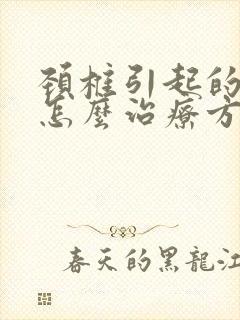 頚椎引起的
怎麼治療方
春天的黑龍江